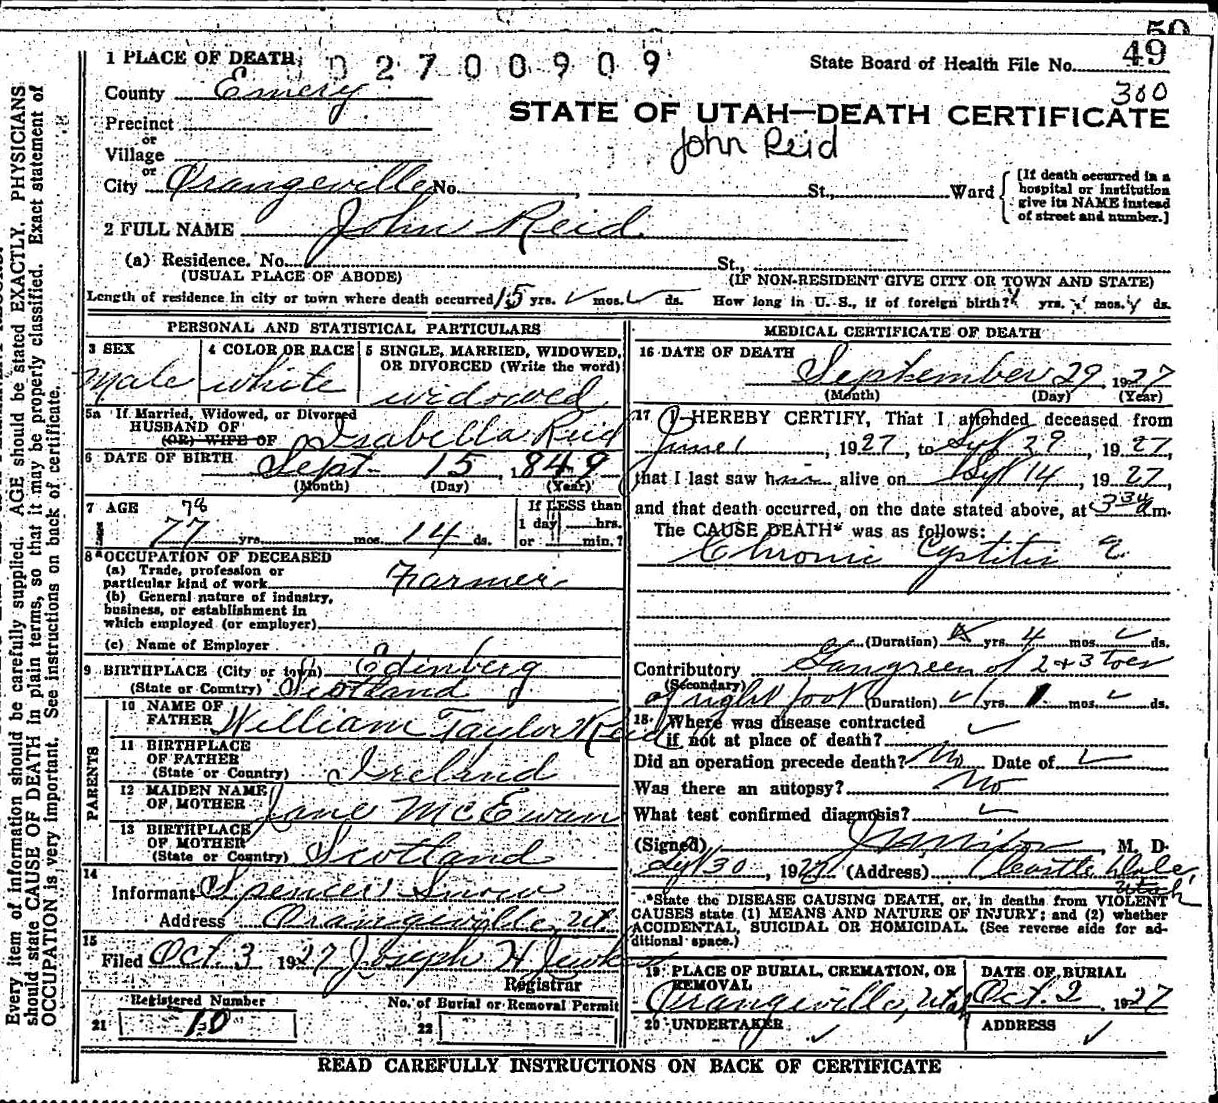 50
49
1 PLACE OF DEATH 0 2 7 0 0 9 0 9 State Board of Health File No.
300
County Emery
STATE OF UTAH—DEATH CERTIFICATE
Precinct
John Reid
or
Village
or
City Orangeville No. , St., Ward
[If death occurred in a hospital or institution give its NAME instead of street and number.]
2 FULL NAME John Reid
(a) Residence. No. St.,
(USUAL PLACE OF ABODE) (IF NON-RESIDENT GIVE CITY OR TOWN AND STATE)
Length of residence in city or town where death occurred 15 yrs. mos. ds. How long in U. S., if of foreign birth? yrs. mos. ds.
PERSONAL AND STATISTICAL PARTICULARS
3 SEX
Male
4 COLOR OR RACE
white
5 SINGLE, MARRIED, WIDOWED, OR DIVORCED (Write the word)
widowed
5a If Married, Widowed, or Divorced
HUSBAND OF
(OR) WIFE OF Isabella Reid
6 DATE OF BIRTH Sept 15 , 1849
(Month) (Day) (Year)
7 AGE 78
77 yrs. mos. 14 ds.
If LESS than
1 day hrs.
or min.?
8 OCCUPATION OF DECEASED
(a) Trade, profession or
particular kind of work Farmer
(b) General nature of industry,
business, or establishment in
which employed (or employer)
(c) Name of Employer
9 BIRTHPLACE (City or town) Edinberg
(State or Country) Scotland
PARENTS
10 NAME OF
FATHER William Taylor Reid
11 BIRTHPLACE
OF FATHER
(State or Country) Irelnd
12 MAIDEN NAME
OF MOTHER Jane McEwan
13 BIRTHPLACE
OF MOTHER
(State or Country) Scotland
14
Informant Spencer Snow
Address Orangeville, Ut.
15
Filed Oct 3 1927 Joseph H
Registrar
Registered Number No. of Burial or Removal Permit
21 10 22
MEDICAL CERTIFICATE OF DEATH
16 DATE OF DEATH
September 29, 1927
(Month) (Day) (Year)
17 I HEREBY CERTIFY, That I attended deceased from
June 1, 1927, to Sept 29, 1927,
that I last saw h alive on Sept 14, 1927,
and that death occurred, on the date stated above, at 3 m.
The CAUSE DEATH* was as follows:
Chronic Cystitis
(Duration) yrs. 4 mos. ds.
Contributory Gangreen of 2 & 3 toes
(Secondary)
of right foot (Duration) yrs. 1 mos. ds.
18. Where was disease contracted
if not at place of death?
Did an operation precede death? No Date of
Was there an autopsy? No
What test confirmed diagnosis?
(Signed) , M. D.
Sept 30, 1927 (Address) Castle Dale,
Utah
*State the DISEASE CAUSING DEATH, or, in deaths from VIOLENT
CAUSES state (1) MEANS AND NATURE OF INJURY; and (2) whether
ACCIDENTAL, SUICIDAL OR HOMICIDAL. (See reverse side for ad-
ditional space.)
19 PLACE OF BURIAL, CREMATION, OR
REMOVAL
Orangeville, Utah
DATE OF BURIAL
Oct. 2 1927
20 UNDERTAKER
ADDRESS
READ CAREFULLY INSTRUCTIONS ON BACK OF CERTIFICATE
Every item of information should be carefully supplied. AGE should be stated EXACTLY. PHYSICIANS
should state CAUSE OF DEATH in plain terms, so that it may be properly classified. Exact statement of
OCCUPATION is very important. See instructions on back of certificate.